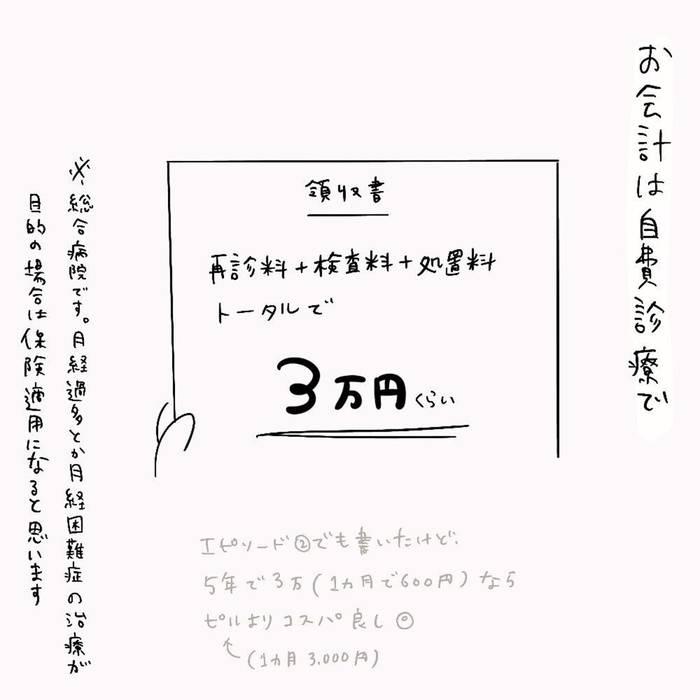 お会計は自費診療で
領収書
再診料+検査料+処置料
トータルで
3万円くらい
※総合病院です。月経過多とか月経困難症の治療が
目的の場合は保険適用になると思います
エピソード②でも書いたけど、
5年で3万(1カ月で600円)なら
ピルよりコスパ良し◎
(1カ月3,000円)